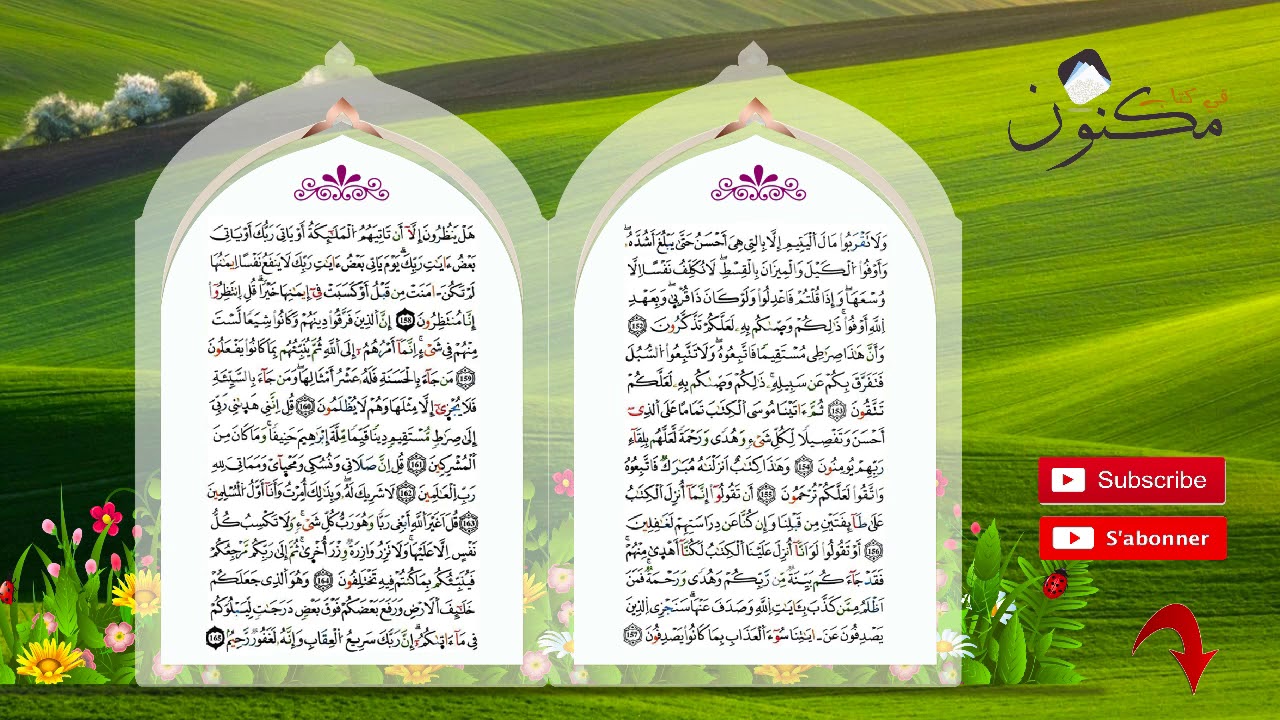 في كتاب
مكنون
وَلَا تَقْرَبُوا مَالَ اَلْيَتِيمِ إِلَّا بِالتِي هِيَ أَحْسَنُ حَتَّىٰ يَبْلُغَ أَشُدَّهُۥ
وَأَوْفُوا اُلْكَيْلَ وَالْمِيزَانَ بِالْقِسْطِ لَا نُكَلِّفُ نَفْسًا اِلَّا
وُسْعَهَا وَإِذَا قُلْتُمْ فَاعْدِلُوا وَلَوْ كَانَ ذَا قُرْبٰى وَبِعَهْدِ
اِللَّهِ أَوْفُوا ذَٰلِكُمْ وَصّٰىكُم بِهِۦ لَعَلَّكُمْ تَذَّكَّرُونَ 152
وَأَنَّ هَٰذَا صِرَٰطِي مُسْتَقِيمًا فَاتَّبِعُوهُ وَلَا تَتَّبِعُوا اُلسُّبُلَ
فَتَفَرَّقَ بِكُمْ عَن سَبِيلِهِۦ ذَٰلِكُمْ وَصّٰىكُم بِهِۦ لَعَلَّكُمْ
تَتَّقُونَ 153 ثُمَّ ءَاتَيْنَا مُوسَى اَلْكِتَٰبَ تَمَامًا عَلَى اَلذِي
أَحْسَنَ وَتَفْصِيلًا لِّكُلِّ شَيْءٍ وَهُدًى وَرَحْمَةً لَّعَلَّهُم بِلِقَاءِ
رَبِّهِمْ يُومِنُونَ 154 وَهَٰذَا كِتَٰبٌ اَنزَلْنَٰهُ مُبَٰرَكٌ فَاتَّبِعُوهُ
وَاتَّقُوا لَعَلَّكُمْ تُرْحَمُونَ 155 أَن تَقُولُوا إِنَّمَا أُنزِلَ اَلْكِتَٰبُ
عَلَىٰ طَائِفَتَيْنِ مِن قَبْلِنَا وَإِن كُنَّا عَن دِرَاسَتِهِمْ لَغَٰفِلِينَ
156 أَوْ تَقُولُوا لَوَ اَنَّا أُنزِلَ عَلَيْنَا اَلْكِتَٰبُ لَكُنَّا أَهْدٰى مِنْهُمْ
فَقَدْ جَاءَكُم بَيِّنَةٌ مِّن رَّبِّكُمْ وَهُدًى وَرَحْمَةٌ فَمَنَ
اَظْلَمُ مِمَّن كَذَّبَ بِـَٔايَٰتِ اِللَّهِ وَصَدَفَ عَنْهَا سَنَجْزِي اِلذِينَ
يَصْدِفُونَ عَنَ ـ ايَٰتِنَا سُوءَ اَلْعَذَابِ بِمَا كَانُوا يَصْدِفُونَ 157
هَلْ يَنظُرُونَ إِلَّا أَن تَاتِيَهُمُ اُلْمَلَٰئِكَةُ أَوْ يَاتِيَ رَبُّكَ أَوْ يَاتِيَ
بَعْضُ ءَايَٰتِ رَبِّكَ يَوْمَ يَاتِي بَعْضُ ءَايَٰتِ رَبِّكَ لَا يَنفَعُ نَفْسًا اِيمَٰنُهَا
لَمْ تَكُنَ ـ امَنَتْ مِن قَبْلُ أَوْ كَسَبَتْ فِي إِيمَٰنِهَا خَيْرًا قُلِ اِنتَظِرُوا
إِنَّا مُنتَظِرُونَ 158 إِنَّ اَلذِينَ فَرَّقُوا دِينَهُمْ وَكَانُوا شِيَعًا لَّسْتَ
مِنْهُمْ فِي شَيْءٍ اِنَّمَا أَمْرُهُمُ إِلَى اَللَّهِ ثُمَّ يُنَبِّئُهُم بِمَا كَانُوا يَفْعَلُونَ
159 مَن جَاءَ بِالْحَسَنَةِ فَلَهُۥ عَشْرُ أَمْثَالِهَا وَمَن جَاءَ بِالسَّيِّئَةِ
فَلَا يُجْزٰى إِلَّا مِثْلَهَا وَهُمْ لَا يُظْلَمُونَ 160 قُلِ اِنَّنِي هَدٰىنِي رَبِّيَ
إِلَىٰ صِرَٰطٍ مُّسْتَقِيمٍ دِينًا قَيِّمًا مِّلَّةَ إِبْرَٰهِيمَ حَنِيفًا وَمَا كَانَ مِنَ
اَلْمُشْرِكِينَ 161 قُلِ اِنَّ صَلَاتِي وَنُسُكِي وَمَحْيَاي وَمَمَاتِيَ لِلهِ
رَبِّ اِلْعَٰلَمِينَ 162 لَا شَرِيكَ لَهُۥ وَبِذَٰلِكَ أُمِرْتُ وَأَنَا أَوَّلُ اُلْمُسْلِمِينَ
163 قُلَ اَغَيْرَ اَللَّهِ أَبْغِي رَبًّا وَهُوَ رَبُّ كُلِّ شَيْءٍ وَلَا تَكْسِبُ كُلُّ
نَفْسٍ اِلَّا عَلَيْهَا وَلَا تَزِرُ وَازِرَةٌ وِزْرَ أُخْرٰى ثُمَّ إِلَىٰ رَبِّكُم مَّرْجِعُكُمْ
فَيُنَبِّئُكُم بِمَا كُنتُمْ فِيهِ تَخْتَلِفُونَ 164 وَهُوَ اَلذِي جَعَلَكُمْ
خَلَٰئِفَ اَلَارْضِ وَرَفَعَ بَعْضَكُمْ فَوْقَ بَعْضٍ دَرَجَٰتٍ لِّيَبْلُوَكُمْ
فِي مَا ءَاتٰىكُمُ إِنَّ رَبَّكَ سَرِيعُ اُلْعِقَابِ وَإِنَّهُۥ لَغَفُورٌ رَّحِيمٌ 165
Subscribe
S'abonner